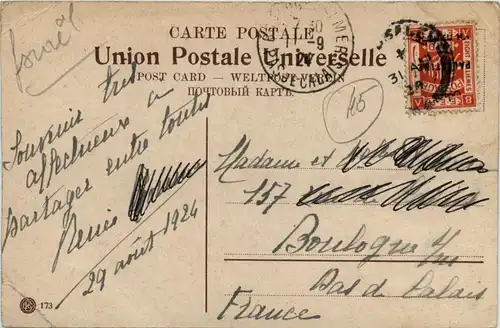 CARTE POSTALE
Union Postale Universelle
POST CARD – WELTPOST-VEREIN
ПОЧТОВЫЙ КАРТЪ
45
Souvenir très
affectueux à
partager entre toutes
Renée
29 août 1924
Madame et
157
Boulogne s/m
Pas de Calais
France
173